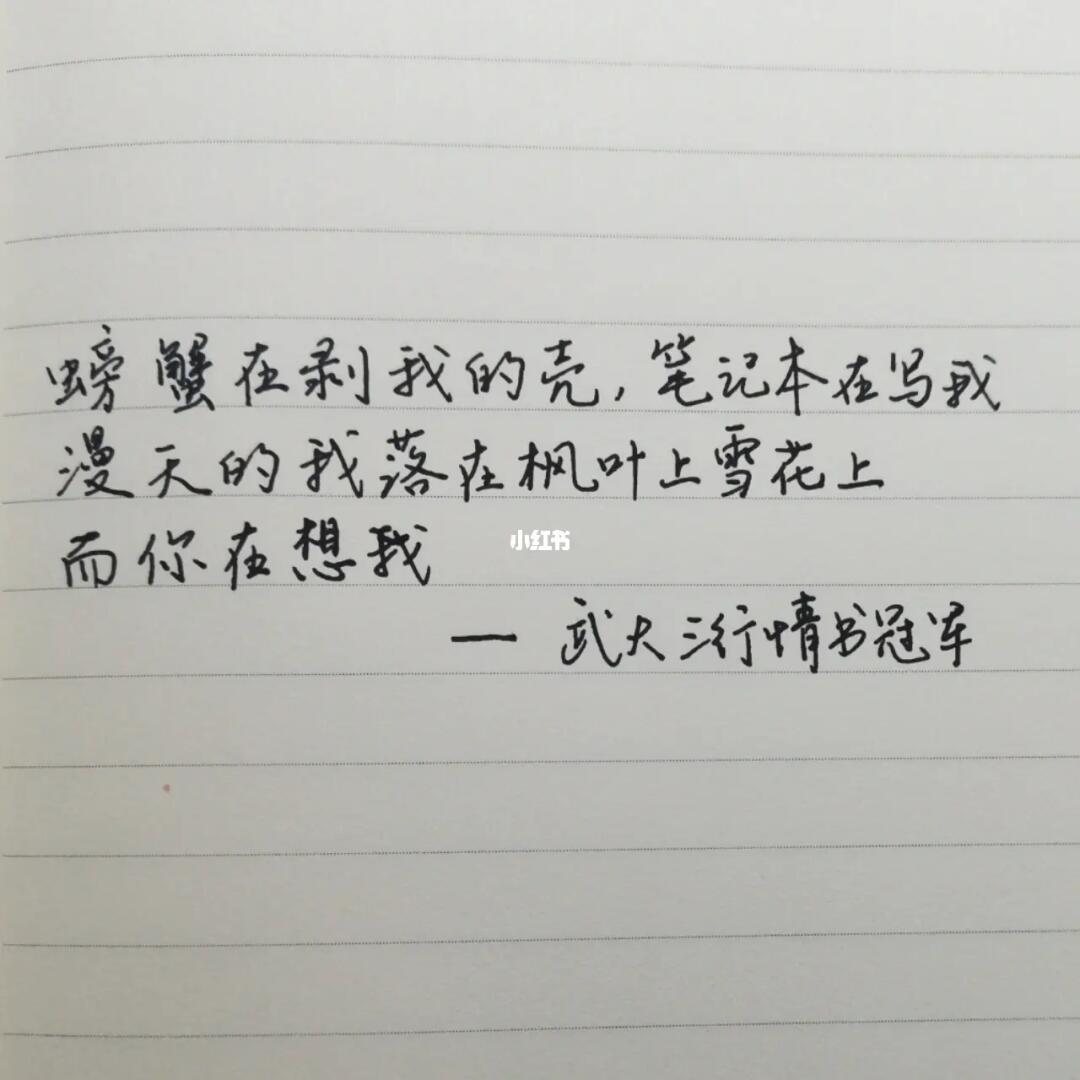 螃蟹在剥我的壳，笔记本在写我
漫天的我落在枫叶上雪花上
而你在想我
小红书
— 武大三行情书冠军